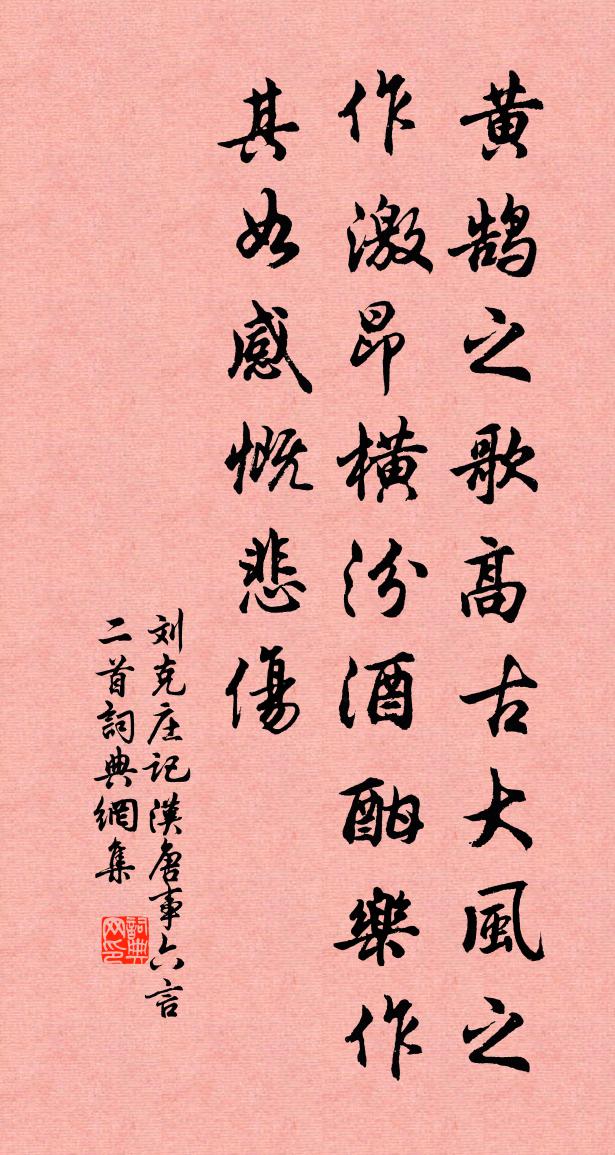 黄鹄之歌高古大風之
作激昂横汾酒酣樂作
其如感慨悲傷
刘克庄記漢唐事六言
二首詞典網集
詞典网印